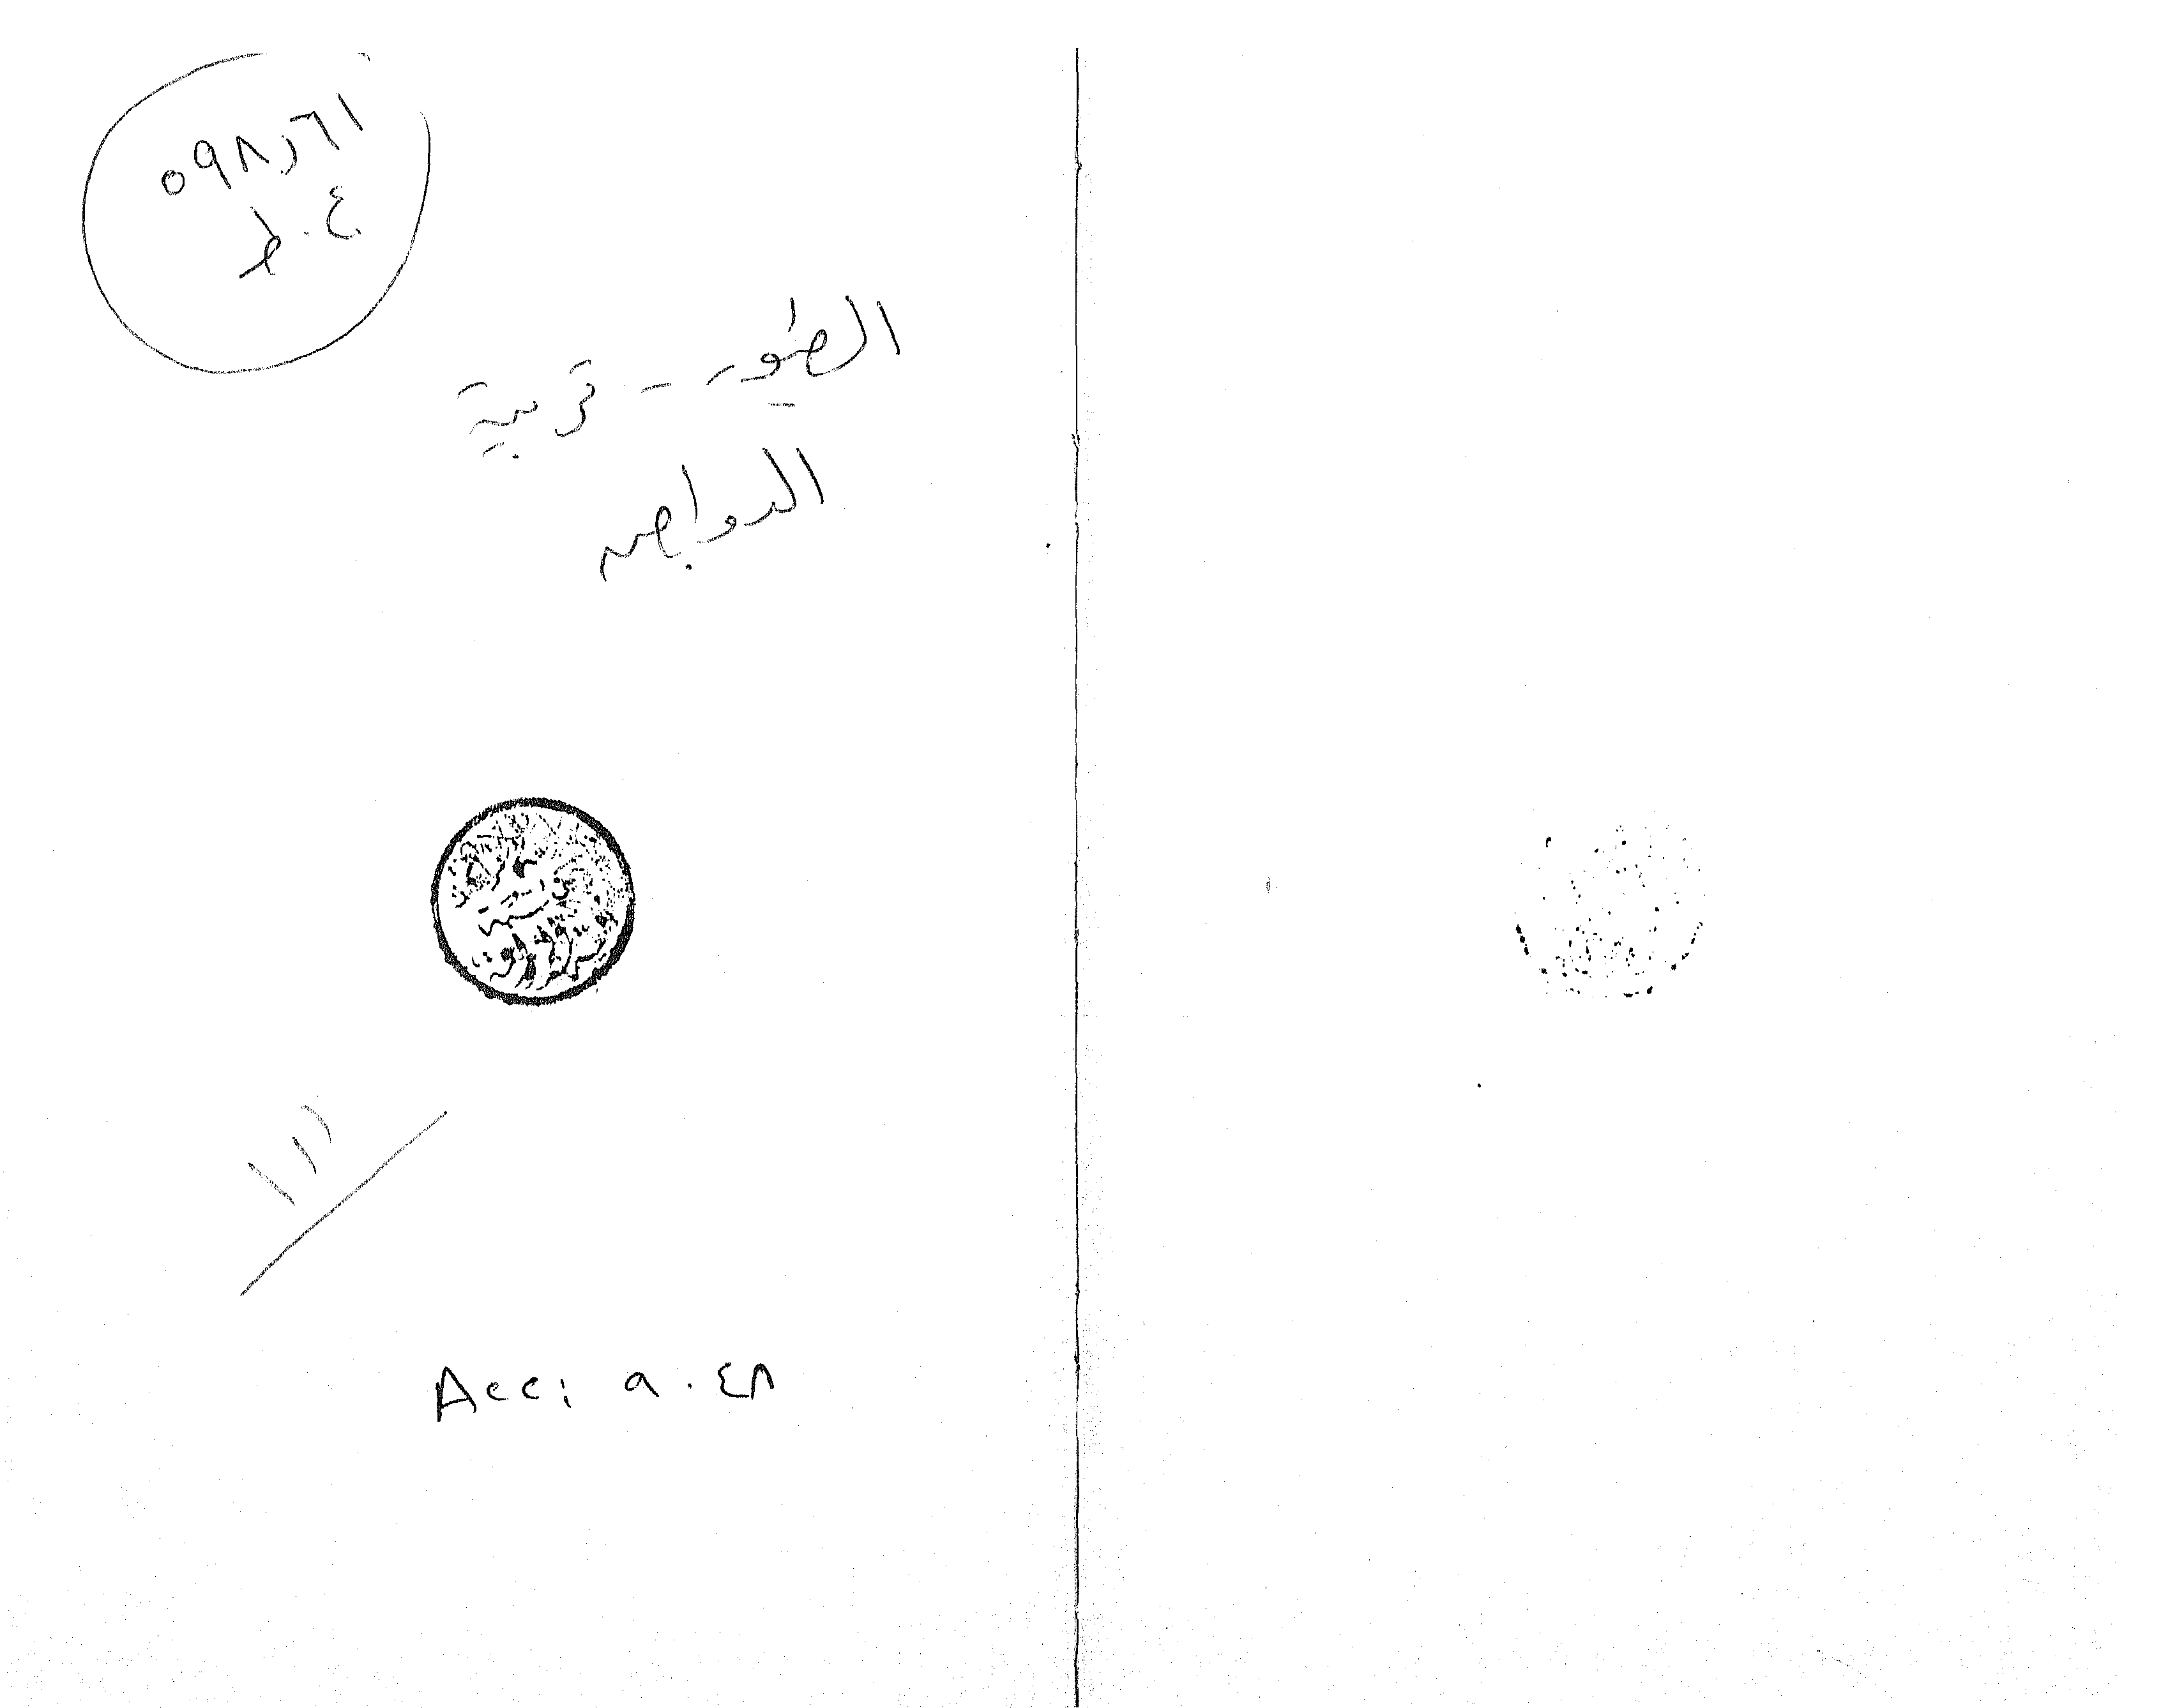 ٥٩٨ر٦١
ع.ط
الطيور - تربية
الدواجن
١١١
Acc: ٩٠٤٨